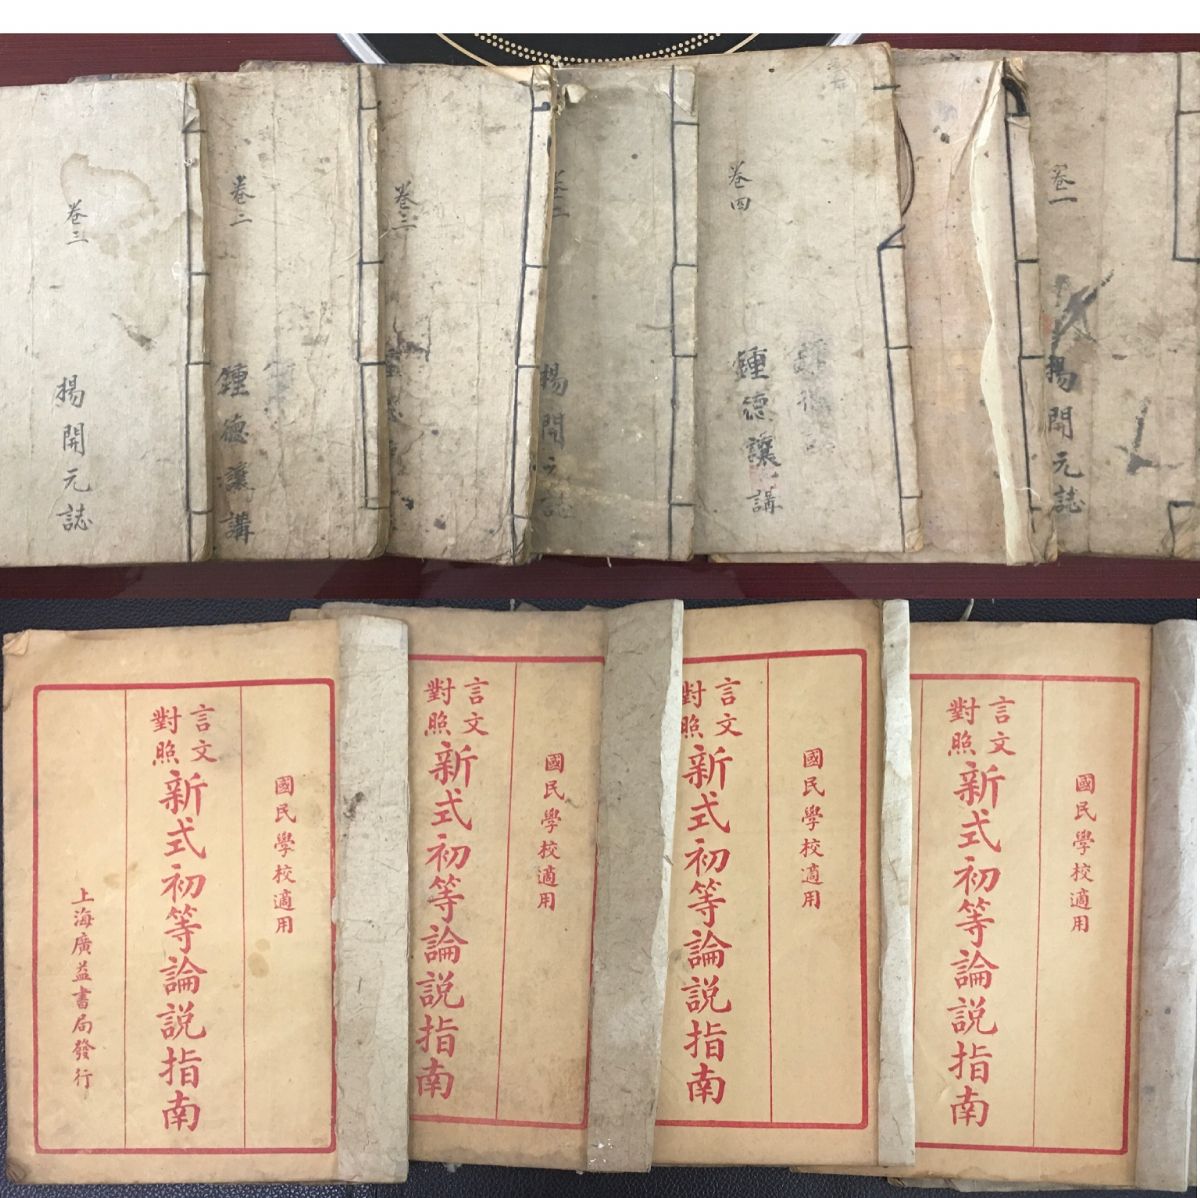 卷三
揚開元誌
卷二
鍾德讓講
卷三
揚開元誌
卷四
鍾德讓講
卷一
揚開元誌
國民學校適用
言文對照
新式初等論説指南
上海廣益書局發行
國民學校適用
言文對照
新式初等論説指南
國民學校適用
言文對照
新式初等論説指南
國民學校適用
言文對照
新式初等論説指南